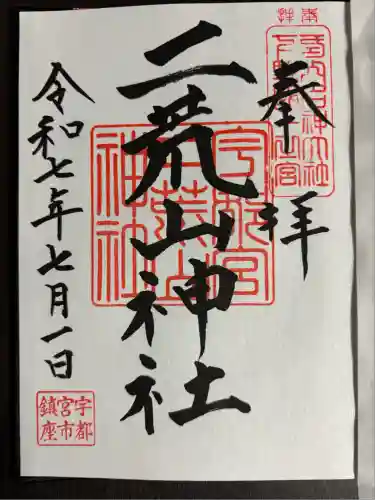 奉拝
二荒山神社
宇都宮
二荒山
神社
令和七年七月一日
宇都
宮市
鎮座